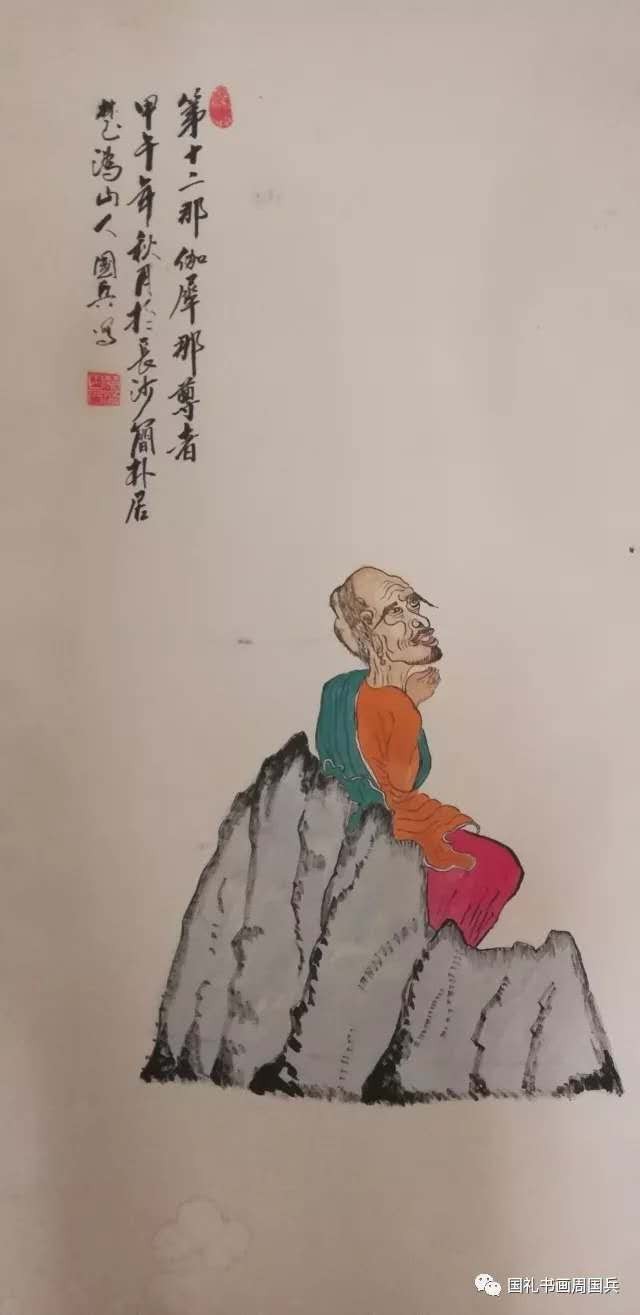 第十二那伽犀那尊者
甲午年秋月於長沙簡朴居
楚沩山人國兵寫
国礼书画周国兵